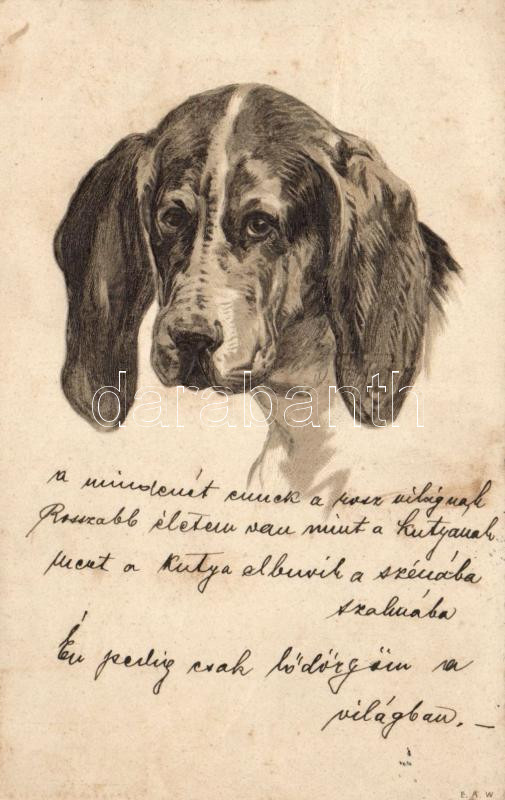 darabanth
a mindenét ennek a rosz világnak
Rosszabb életem van mint a kutyanak
mert a kutya elbuvik a szénába
szalmába
Én pedig csak lödörgöm a
világban. –
E. A. W